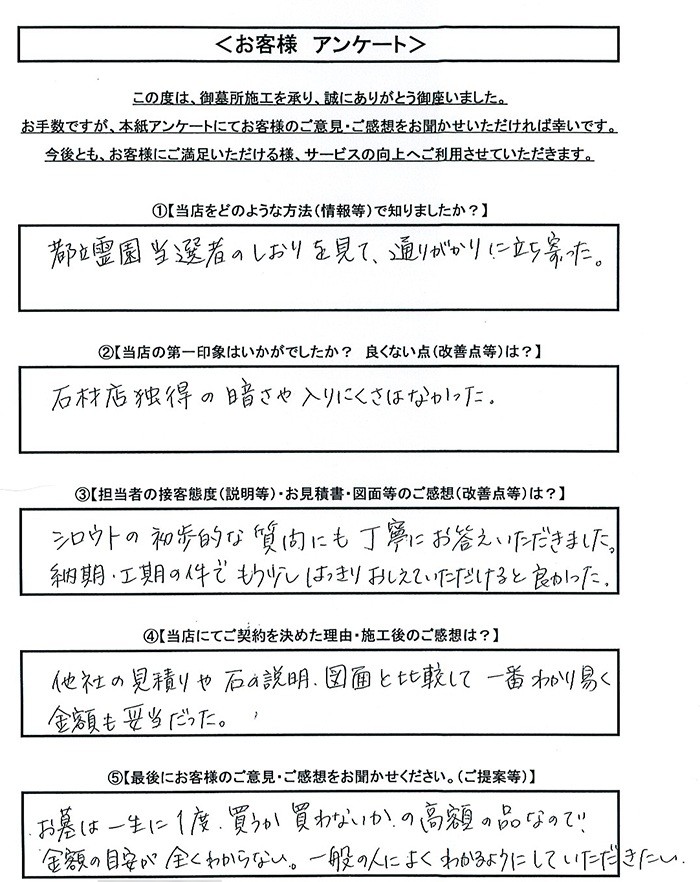 ＜お客様　アンケート＞
この度は、御墓所施工を承り、誠にありがとう御座いました。
お手数ですが、本紙アンケートにてお客様のご意見・ご感想をお聞かせいただければ幸いです。
今後とも、お客様にご満足いただける様、サービスの向上へご利用させていただきます。
①【当店をどのような方法（情報等）で知りましたか？】
都立霊園当選者のしおりを見て、通りがかりに立ち寄った。
②【当店の第一印象はいかがでしたか？　良くない点（改善点等）は？】
石材店独得の暗さや入りにくさはなかった。
③【担当者の接客態度（説明等）・お見積書・図面等のご感想（改善点等）は？】
シロウトの初歩的な質問にも丁寧にお答えいただきました。
納期・工期の件でもう少しはっきりおしえていただけると良かった。
④【当店にてご契約を決めた理由・施工後のご感想は？】
他社の見積りや石の説明、図面と比較して一番わかり易く
金額も妥当だった。
⑤【最後にお客様のご意見・ご感想をお聞かせください。（ご提案等）】
お墓は一生に1度、買うか買わないか、の高額の品なので、
金額の目安が全くわからない。一般の人によくわかるようにしていただきたい。